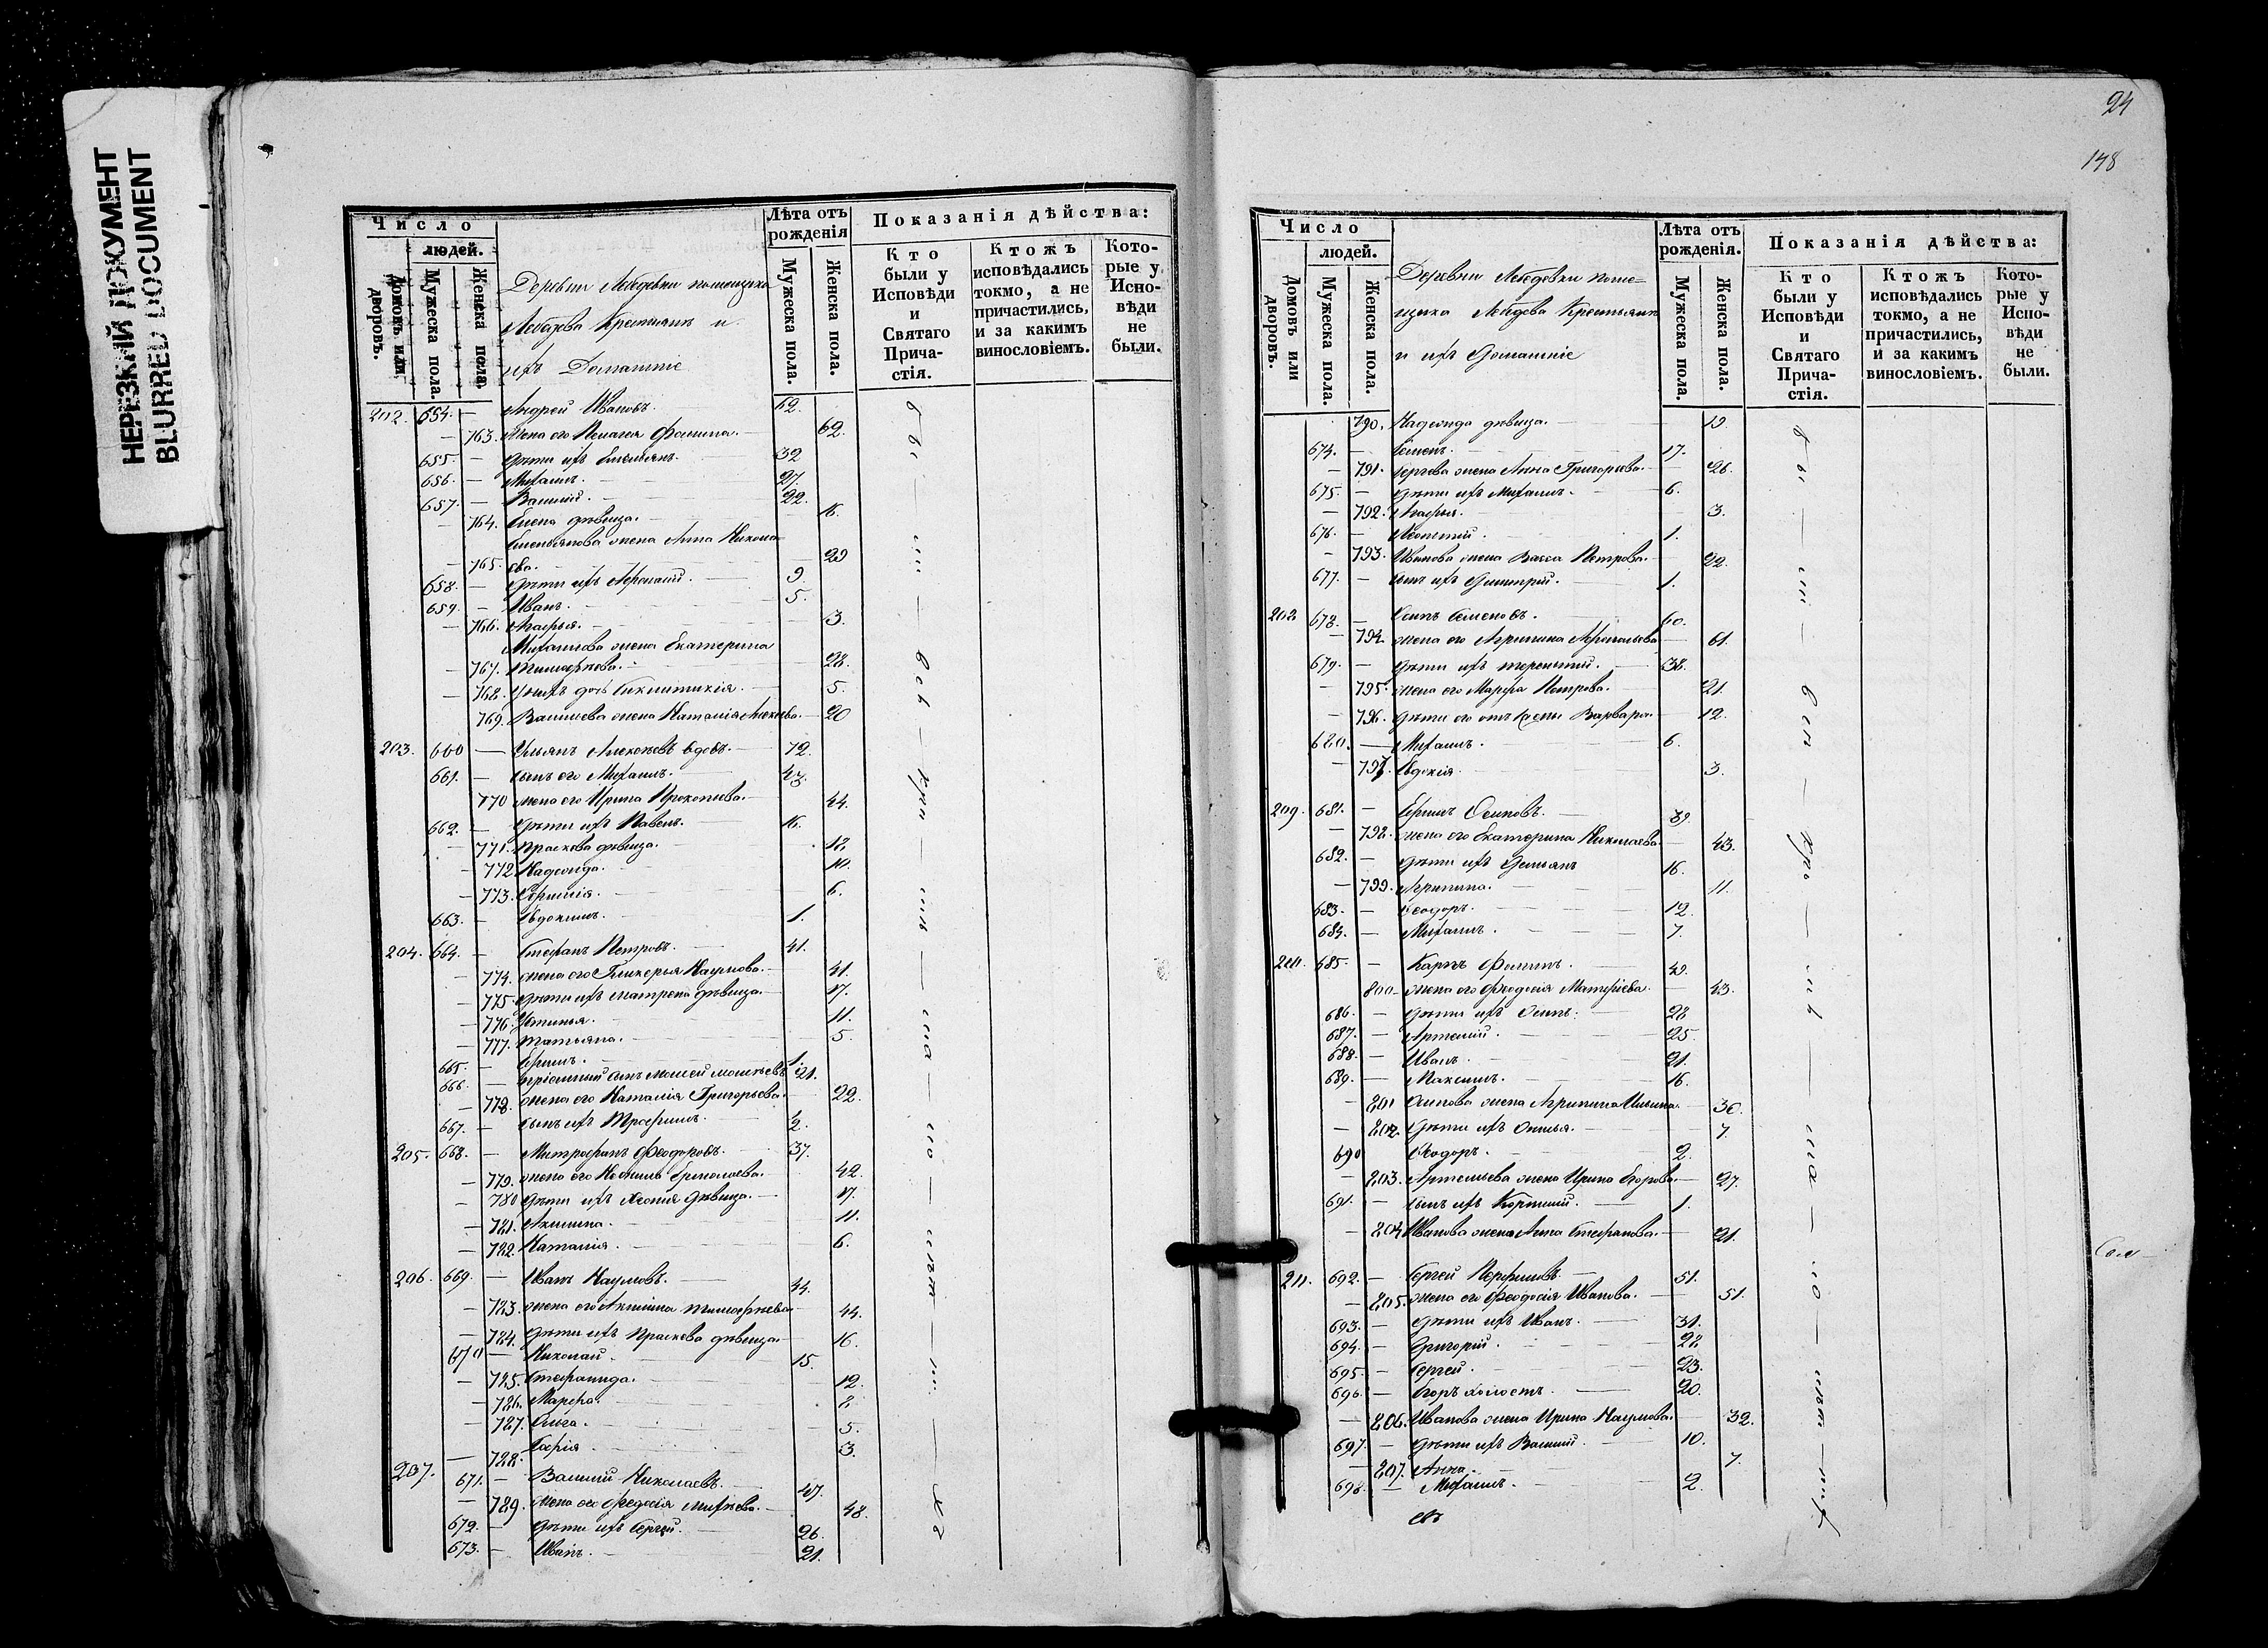 НЕРЕЗКИЙ ДОКУМЕНТ
BLURRED DOCUMENT
Число
людей.
Домовъ или дворовъ.
Мужеска пола.
Женска пола.
Деревни Лебедевки помещика
Лебедева Крестьяне и
ихъ Домашніе
Лѣта отъ рожденія
Мужеска пола.
Женска пола.
Показанія дѣйства:
Кто были у Исповѣди и Святаго Причастія.
Ктожъ исповѣдались токмо, а не причастились, и за какимъ винословіемъ.
Которые у Исповѣди не были.
202. 654. — Андрей Ивановъ. 62.
— 763. жена его Пелагея Фомина. 62.
655. — дѣти ихъ Емельянъ. 32
656. — Михаилъ. 27.
657. — Василий. 22.
— 764. Елена дѣвица. 16.
Емельянова жена Анна Никола
— 765. ева. 29
658. — дѣти ихъ Афанасий. 9.
659. — Иванъ. 5.
— 766. Агафья. 3.
Михаилова жена Екатерина
— 767. Тимофеева. 28.
— 768. У нихъ дочь 5.
769. Васильева жена Наталія Алексеева. 20
203. 660 — Ульянъ Алексеевъ вдовъ. 72.
661. — сынъ его Михаилъ. 43.
770 жена его Ирина Прокопьева. 44.
662. — дѣти ихъ Павелъ. 16.
— 771. Праскева дѣвица. 12.
— 772. Надежда. 10.
— 773. 6.
663. — Евдокимъ. 1.
204. 664. — Стефанъ Петровъ. 41.
— 774. жена его Гликерья Наумова. 41.
— 775. дѣти ихъ Матрена дѣвица. 17.
— 776. Устинья. 11.
— 777. Татьяна. 5.
665. — Ефимъ. 1.
666. — пріемный сынъ Моисей 21.
— 778. жена его Наталія Григорьева. 22.
667. — сынъ ихъ Трофимъ. 2.
205. 668. — Митрофанъ Феодоровъ. 37.
— 779. жена его Ермолаева. 42.
— 780 дѣти ихъ Ксенія дѣвица. 17.
— 781. Акилина. 11.
— 782. Наталія. 6.
206. 669. — Иванъ Наумовъ. 44.
— 783. жена его Акилина Тимофеева 44.
— 784. дѣти ихъ Праскева дѣвица. 16.
670 — Николай. 15.
— 785. Стефанида. 12.
— 786. Марфа. 8
— 787. Ольга. 5.
— 788. 3.
207. 671. — Василий Николаевъ. 47.
— 789. жена его Феодосія 48.
672. — дѣти ихъ Сергей. 26.
673. — Иванъ. 21.
24
148
Число
людей.
Домовъ или дворовъ.
Мужеска пола.
Женска пола.
Деревни Лебедевки поме=
щика Лебедева Крестьяне
и ихъ Домашніе
Лѣта отъ рожденія.
Мужеска пола.
Женска пола.
Показанія дѣйства:
Кто были у Исповѣди и Святаго Причастія.
Ктожъ исповѣдались токмо, а не причастились, и за какимъ винословіемъ.
Которые у Исповѣди не были.
790. Надежда дѣвица. 19.
674. — Семенъ. 17.
— 791. Сергѣева жена Анна Григорьева. 26.
675. — дѣти ихъ Михаилъ. 6.
— 792. Агафья. 3.
676. — Леонтий. 1.
— 793. Иванова жена Васса Петрова. 22.
677. — сынъ ихъ Димитрій. 1.
208 678. — Осипъ Семеновъ. 60.
— 794. жена его Агрипина 61.
679. — дѣти ихъ Терентий. 38.
— 795. жена его Марфа Петрова. 21.
— 796. дѣти его Варвара 12.
680. — Михаилъ. 6.
— 797. Евдокія. 3.
209. 681. — Ефимъ Осиповъ. 39.
— 798. жена его Екатерина Николаева. 43.
682. — дѣти ихъ Демьянъ 16.
— 799. Агрипина. 11.
683. — Феодоръ. 12.
684. — Михаилъ. 7.
210. 685. — Карпъ Фоминъ. 49.
800. жена его Феодосія Матфеева. 43.
686. — дѣти ихъ Осипъ. 28
687. — Артемий. 25.
688. — Иванъ. 21.
689. — Максимъ. 16.
— 801 Осипова жена Агрипина Ильина. 30.
— 802. дѣти ихъ 7.
690 Феодоръ. 2.
— 803. Артемьева жена Ирина Егорова. 27.
691. — сынъ ихъ 1.
— 804 Иванова жена Анна Стефанова. 21.
211. 692. — Сергей 51.
— 805. жена его Феодосія Иванова. 51.
693. — дѣти ихъ Иванъ. 31.
694. — Григорий. 28
695. — Сергей. 23.
696. — Егоръ холостъ. 20.
— 806. Иванова жена Ирина Наумова. 32.
697. — дѣти ихъ Василий. 10.
— 807. Анна. 7.
698. — Михаилъ. 2.